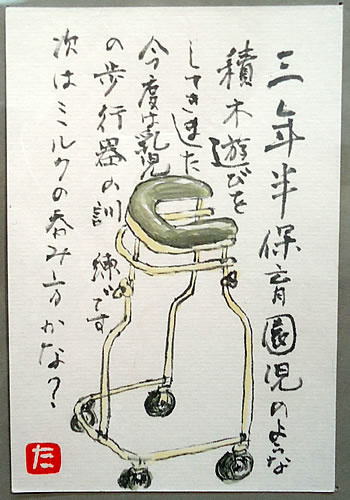 三年半保育園児のような
積木遊びを
してきました
今度は乳児
の歩行器の訓練です
次はミルクの呑み方かな？
た